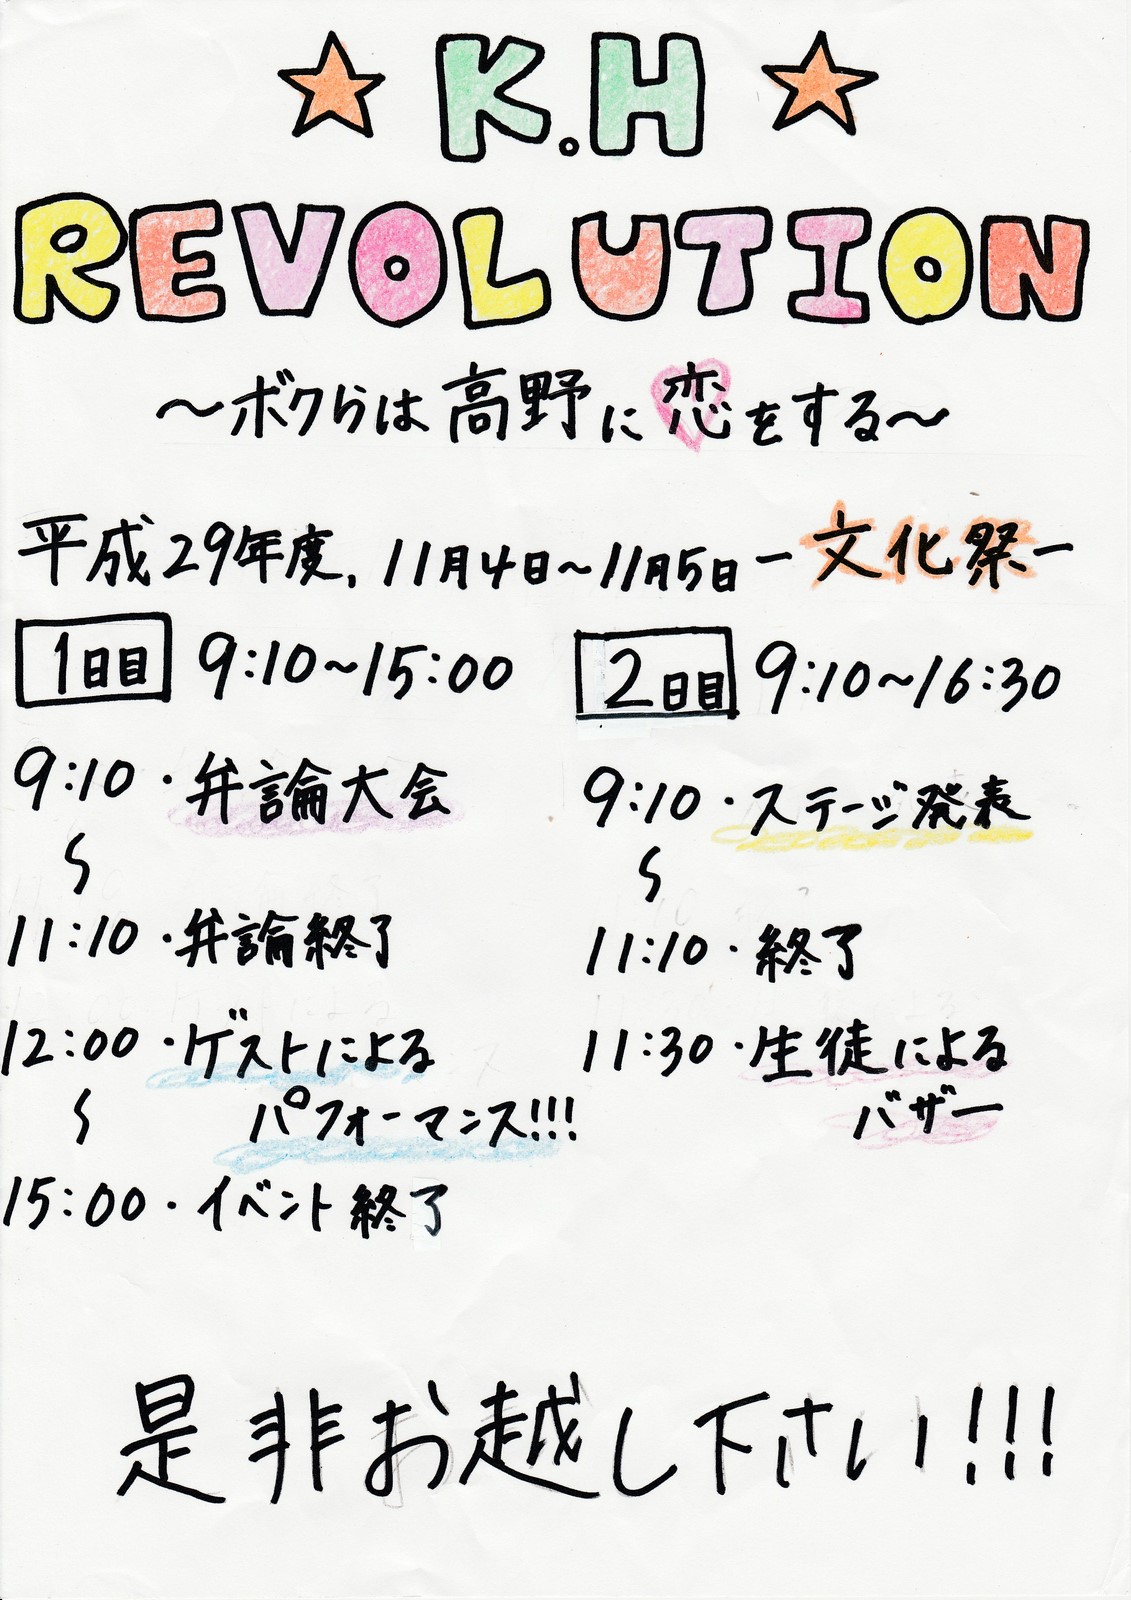 ☆ K.H ☆
REVOLUTION
～ボクらは高野に恋をする～
平成29年度, 11月4日～11月5日 ー文化祭ー
1日目 9:10～15:00
9:10・弁論大会
〜
11:10・弁論終了
12:00・ゲストによる
パフォーマンス!!!
〜
15:00・イベント終了
2日目 9:10～16:30
9:10・ステージ発表
〜
11:10・終了
11:30・生徒による
バザー
是非お越し下さい!!!